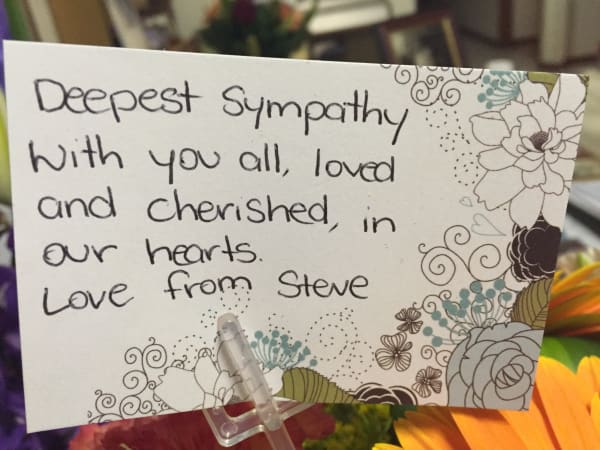 Deepest Sympathy
With you all, loved
and cherished, in
our hearts.
Love from Steve